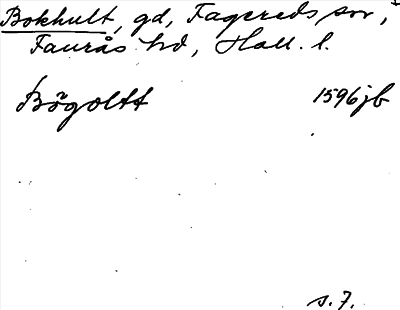 Bokhult, gd, Fagereds sn,
Faurås hd, Hall. l.
Bögoltt 1596 jb
s. 7.